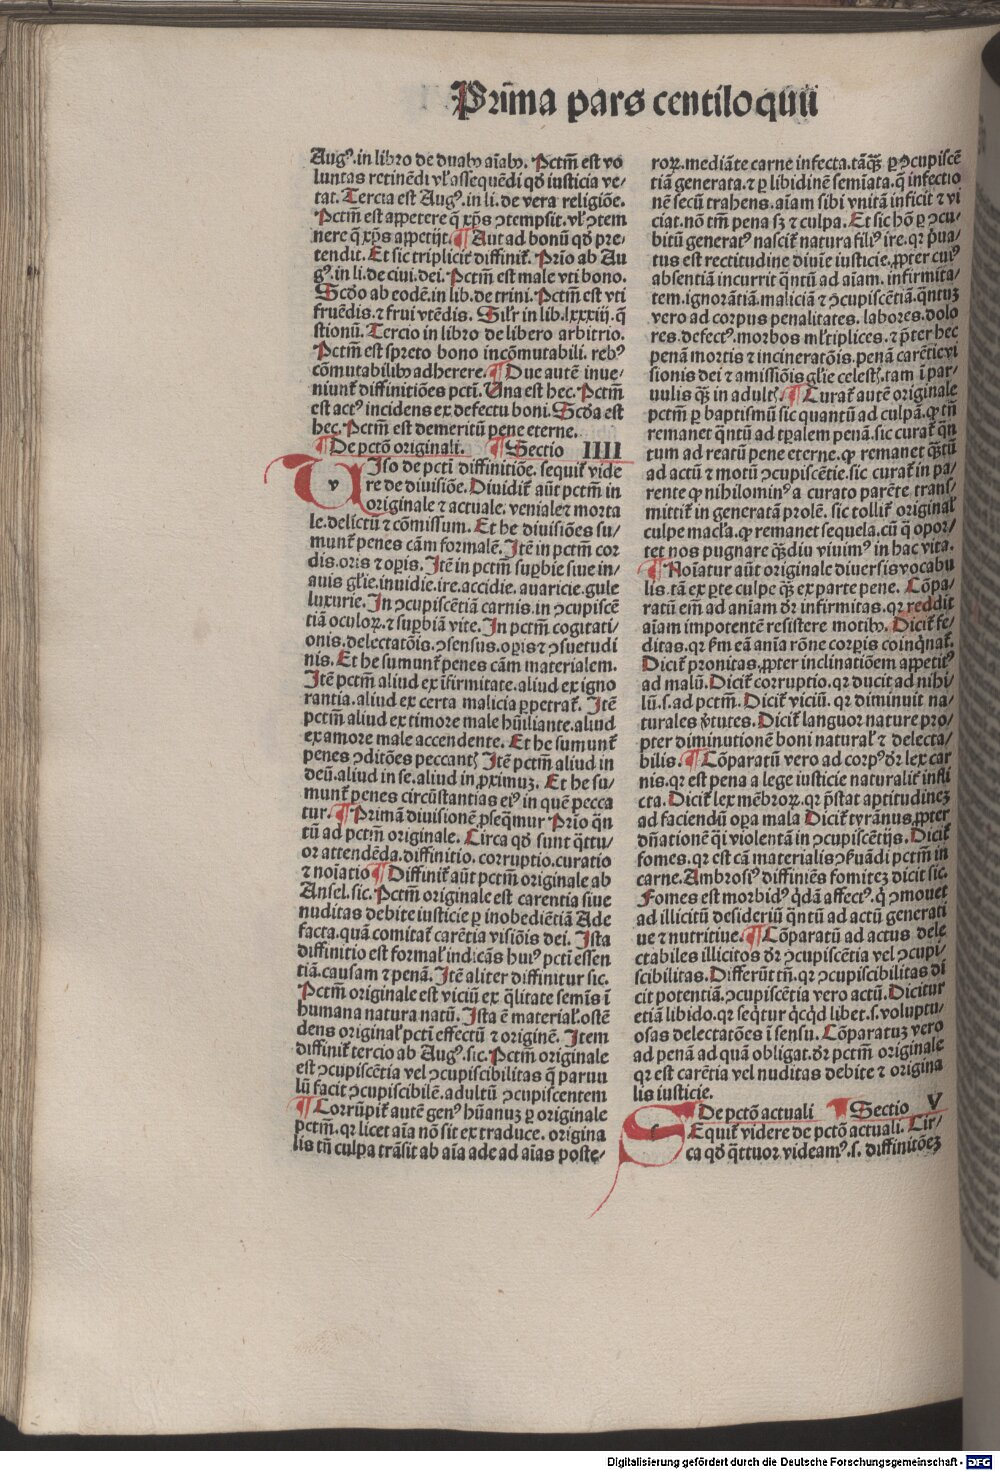 Prīma pars centiloquii
Augꝰ.in libro de duabꝰ aīabꝰ. Pctm̄ est vo
luntas retinēdi vl̓ assequēdi qd̓ iusticia ve/
tat. Tercia est Augꝰ.in li.de vera religiōe.
Pctm̄ est appetere q̄ xp̄s ꝯtempsit.vl̓ ꝯtem
nere q̄ xp̄s appetijt.¶ Aut ad bonū qd̓ pre/
tendit. Et sic triplicit̓ diffinit̓. Prīo ab Au
gꝰ.in li.de ciui.dei. Pctm̄ est male vti bono.
Scd̓o ab eodē.in lib.de trini. Pctm̄ est vti
fruēdis.⁊ frui vtēdis. Sil̓r in lib.lxxxiij.q̄
stionū. Tercio in libro de libero arbitrio.
Pctm̄ est spreto bono incōmutabili. rebꝰ
cōmutabilibꝰ adherere.¶ Due autē inue/
niunt̓ diffinitiōes pcti. Una est hec. Pctm̄
est actꝰ incidens ex defectu boni. Scd̓a est
hec. Pctm̄ est demeritū pene eterne.
¶ De pctō originali. ¶ Sectio IIII
v Iso de pcti diffinitiōe. sequit̓ vide
re de diuisiōe. Diuidit̓ aūt pctm̄ in
originale ⁊ actuale. veniale ⁊ morta
le.delictū ⁊ cōmissum. Et he diuisiōes su/
munt̓ penes cām formalē. Itē in pctm̄ cor
dis.oris ⁊ oꝑis. Itē in pctm̄ suꝑbie siue in/
anis gl̓ie.inuidie.ire.accidie.auaricie.gule
luxurie. In ꝯcupiscētiā carnis.in ꝯcupiscē
tiā oculoꝝ.⁊ suꝑbiā vite. In pctm̄ cogitati/
onis.delectatōis.ꝯsensus.oꝑis ⁊ ꝯsuetudi
nis. Et he sumunt̓ penes cām materialem.
Itē pctm̄ aliud ex īfirmitate.aliud ex igno
rantia.aliud ex certa malicia ꝑpetrat̓. Itē
pctm̄ aliud ex timore male hūiliante.aliud
ex amore male accendente. Et he sumunt̓
penes ꝯditōes peccantꝭ Itē pctm̄ aliud in
deū.aliud in se.aliud in ꝓximuꝫ. Et he su/
munt̓ penes circūstantias eiꝰ in quē pecca
tur.¶ Primā diuisionē ꝓseq̄mur Prīo q̄n
tū ad pctm̄ originale. Circa qd̓ sunt q̄ttu/
or attendēda.diffinitio.corruptio.curatio
⁊ noīatio ¶ Diffinit̓ aūt pctm̄ originale ab
Ansel.sic. Pctm̄ originale est carentia siue
nuditas debite iusticie ꝑ inobediētiā Ade
facta.quā comitat̓ carētia visiōis dei. Ista
diffinitio est formal̓ indicās huiꝰ pcti essen
tiā.causam ⁊ penā. Itē aliter diffinitur sic.
Pctm̄ originale est viciū ex q̄litate semīs ī
humana natura natū. Ista ē material̓.ostē
dens original̓ pcti effectū ⁊ originē. Item
diffinit̓ tercio ab Augꝰ.sic. Pctm̄ originale
est ꝯcupiscētia vel ꝯcupiscibilitas q̄ paruu
lū facit ꝯcupiscibilē.adultū ꝯcupiscentem
¶ Corrūpit̓ autē genꝰ hūanuꝫ ꝑ originale
pctm̄.qꝛ licet aīa nō sit ex traduce. origina
lis tn̄ culpa trāsit ab aīa ade ad aīas poste/
roꝝ.mediāte carne infecta.tāꝙ̄ ꝑ ꝯcupiscē
tiā generata.⁊ ꝑ libidinē semīata.q̄ infectio
nē secū trahens.aīam sibi vnitā inficit ⁊ vi
ciat.nō tm̄ pena sꝫ ⁊ culpa. Et sic hō ꝑ ꝯcu/
bitū generatꝰ nascit̓ natura filiꝰ ire.qꝛ p̓ua/
tus est rectitudine diuīe iusticie.ꝓpter cuiꝰ
absentiā incurrit q̄ntū ad aīam. infirmita/
tem.ignorātiā.maliciā ⁊ ꝯcupiscētiā.q̄ntuꝫ
vero ad corpus penalitates. labores.dolo
res.defectꝰ.morbos ml̓tiplices.⁊ p̄ter hec
penā mortis ⁊ incineratōis.penā carētie vi
sionis dei ⁊ amissiōis gl̓ie celestꝭ.tam ī par/
uulis ꝙ̄ in adultꝭ.¶ Curat̓ autē originale
pctm̄ ꝑ baptismū sic quantū ad culpā.ꝙ tn̄
remanet q̄ntū ad tꝑalem penā.sic curat̓ q̄n
tum ad reatū pene eterne.ꝙ remanet q̄ntū
ad actū ⁊ motū ꝯcupiscētie.sic curat̓ in pa/
rente ꝙ nihilominꝰ a curato parēte trans/
mittit̓ in generatā prolē. sic tollit̓ original̓
culpe macl̓a.ꝙ remanet sequela.cū q̄ opor/
tet nos pugnare ꝙ̄diu viuimꝰ in hac vita.
¶ Noīatur aūt originale diuersis vocabu
lis.tā ex ꝑte culpe ꝙ̄ ex parte pene. Cōpa/
ratū em̄ ad animā dr̄ infirmitas.qꝛ reddit
aīam impotentē resistere motibꝰ. Dicit̓ fe/
ditas.qꝛ ẜm eā anīa rōne corꝑis coinq̄nat̓.
Dicit̓ pronitas.ꝓpter inclinatiōem appetitꝰ
ad malū. Dicit̓ corruptio.qꝛ ducit ad nihi/
lū.s.ad pctm̄. Dicit̓ viciū. qꝛ diminuit na/
turales v̓tutes. Dicit̓ languor nature pro/
pter diminutionē boni natural̓ ⁊ delecta/
bilis.¶ Cōparatū vero ad corpꝰ dr̄ lex car
nis.qꝛ est pena a lege iusticie naturalit̓ infli
cta. Dicit̓ lex mēbroꝝ.qꝛ p̄stat aptitudineꝫ
ad faciendū oꝑa mala Dicit̓ tyrānus.ꝓpter
dn̄ationē q̄i violentā in ꝯcupiscētijs. Dicit̓
fomes.qꝛ est cā materialis ꝯẜuādi pctm̄ in
carne. Ambrosiꝰ diffiniēs fomiteꝫ dicit sic.
Fomes est morbidꝰ q̓dā affectꝰ.q̓ ꝯmouet
ad illicitū desideriū q̄ntū ad actū generati
ue ⁊ nutritiue.¶ Cōparatū ad actus dele
ctabiles illicitos dr̄ ꝯcupiscētia vel ꝯcupi/
scibilitas. Differūt tn̄.qꝛ ꝯcupiscibilitas di
cit potentiā.ꝯcupiscētia vero actū. Dicitur
etiā libido.qꝛ seq̄tur q̓cq̓d libet.s.voluptu/
osas delectatōes ī sensu. Cōparatuꝫ vero
ad penā ad quā obligat.dr̄ pctm̄ originale
qꝛ est carētia vel nuditas debite ⁊ origina
lis iusticie.
¶ De pctō actuali ¶ Sectio V
s Equit̓ videre de pctō actuali. Cir/
ca qd̓ q̄ttuor videamꝰ.s. diffinitōeꝫ
Digitalisierung gefördert durch die Deutsche Forschungsgemeinschaft - DFG